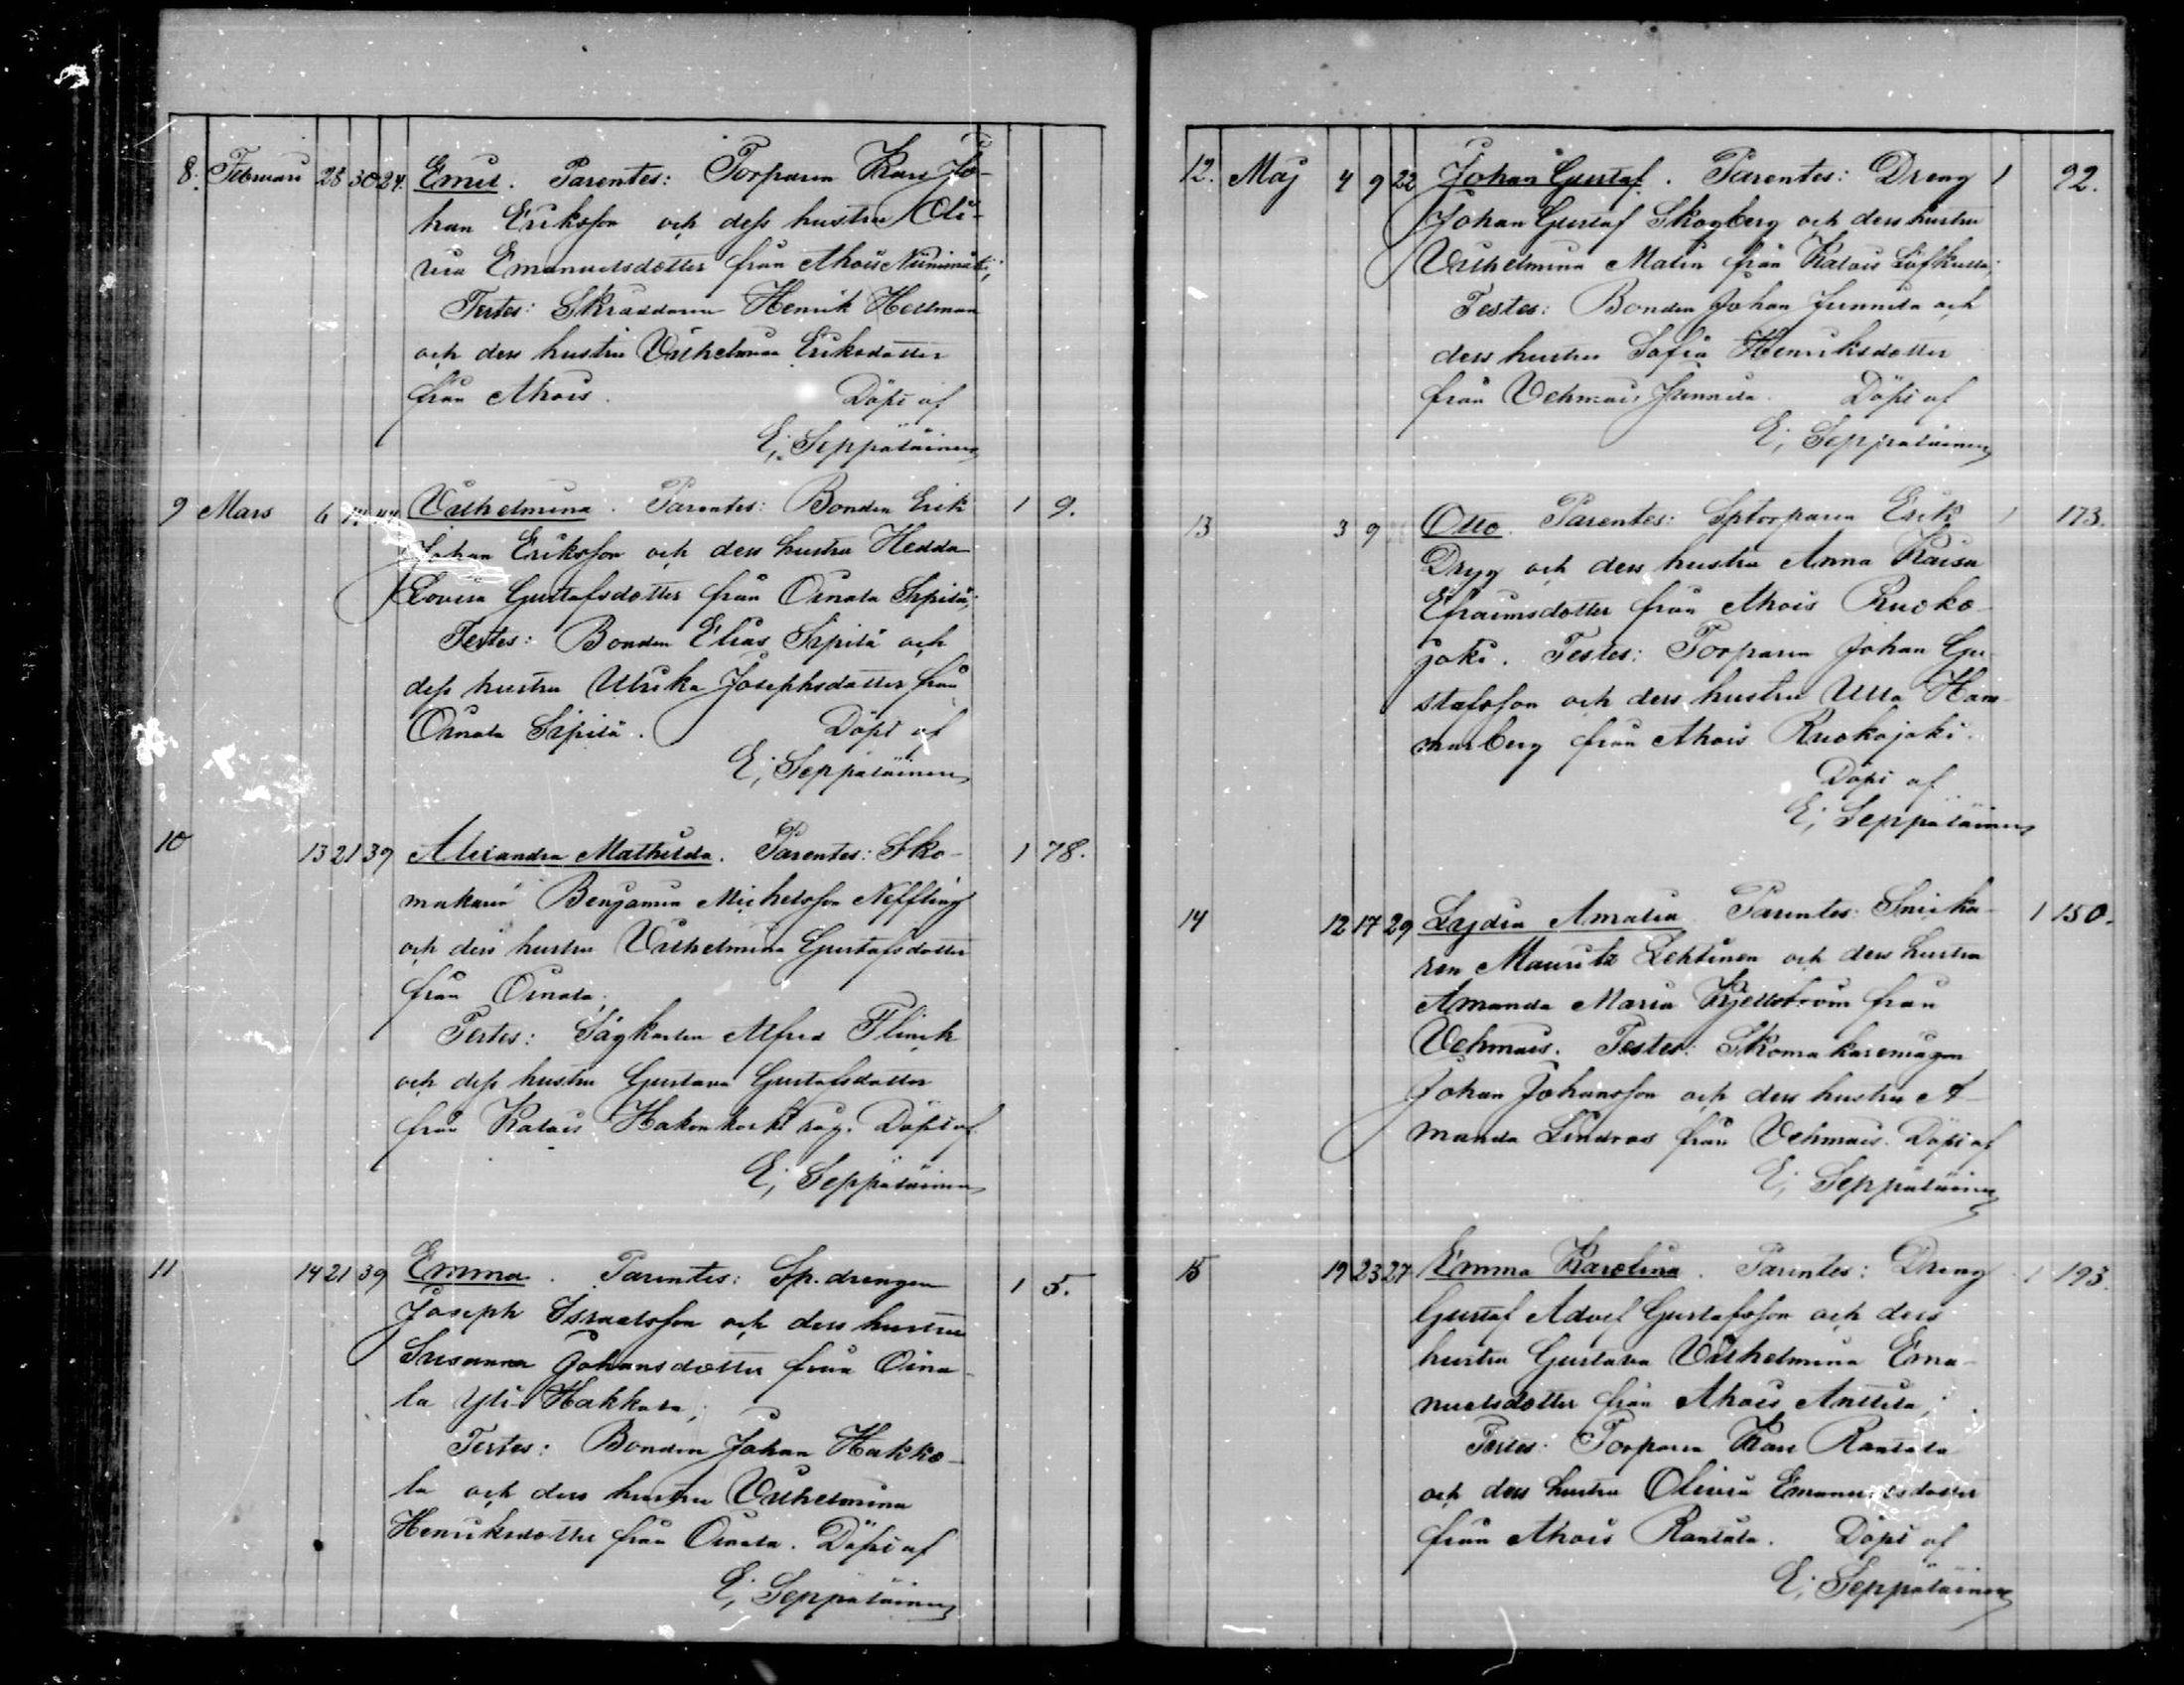 8. Februari 28 30 24. Emil. Parentes: Torparen Karl Jo-
han Eriksson och dess hustru Oli-
via Emanuelsdotter från Ahois Niinimäki;
Testes: Skräddaren Henrik Hellman
och dess hustru Vilhelmina Eriksdotter
från Ahois. Döpt af
E; Seppäläinen
9 Mars 6 14 44 Vilhelmina. Parentes: Bonden Erik 1 9.
Johan Eriksson och dess hustru Hedda
Lovisa Gustafsdotter från Oinala Sipilä;
Testes: Bonden Elias Sipilä och
dess hustru Ulrika Josephsdotter från
Oinala Sipilä. Döpt af
E; Seppäläinen
10 13 21 39 Alexandra Mathilda. Parentes: Sko- 1 78.
makarn Benjamin Michelsson Neffling
och dess hustru Vilhelmina Gustafsdotter
från Oinala;
Testes: Sågkarlen Alfred Flinck
och dess hustru Gustava Gustafsdotter
från Kalais Hakonkoski såg. Döpt af
E; Seppäläinen
11 14 21 39 Emma. Parentes: Sp. drengen 1 5.
Joseph Israelsson och dess hustru
Susanna Johansdotter från Oina-
la Yli Hakkala;
Testes: Bonden Johan Hakka-
la och dess hustru Vilhelmina
Henriksdotter från Oinala. Döpt af
E; Seppäläinen
12. Maj 4 9 22 Johan Gustaf. Parentes: Dreng 1 92.
Johan Gustaf Skogberg och dess hustru
Vilhelmina Malin från Kalais Löfkulla;
Testes: Bonden Johan Junnila och
dess hustru Sofia Henriksdotter
från Vehmais Junnila. Döpt af
E; Seppäläinen
13 3 9 Otto. Parentes: Sptorparen Erik 1 173.
Dryg och dess hustru Anna Kaisa
Efraimsdotter från Ahois Ruoko-
joki. Testes: Torparen Johan Gu-
stafsson och dess hustru Ulla Ham-
marberg från Ahois Ruokojoki.
Döpt af
E; Seppäläinen
14 12 17 29 Lydia Amalia. Parentes: Snicka- 1 150.
ren Mauritz Lehtinen och dess hustru
Amanda Maria Kjellström från
Vehmais. Testes: Skomakaremågen
Johan Johansson och dess hustru A-
manda Lindroos från Vehmais. Döpt af
E; Seppäläinen
15 19 23 27 Emma Karolina. Parentes: Dreng 1 193.
Gustaf Adolf Gustafsson och dess
hustru Gustava Vilhelmina Ema-
nuelsdotter från Ahois Anttila;
Testes: Torparen Karl Rantala
och dess hustru Olivia Emanuelsdotter
från Ahois Rantala. Döpt af
E; Seppäläinen